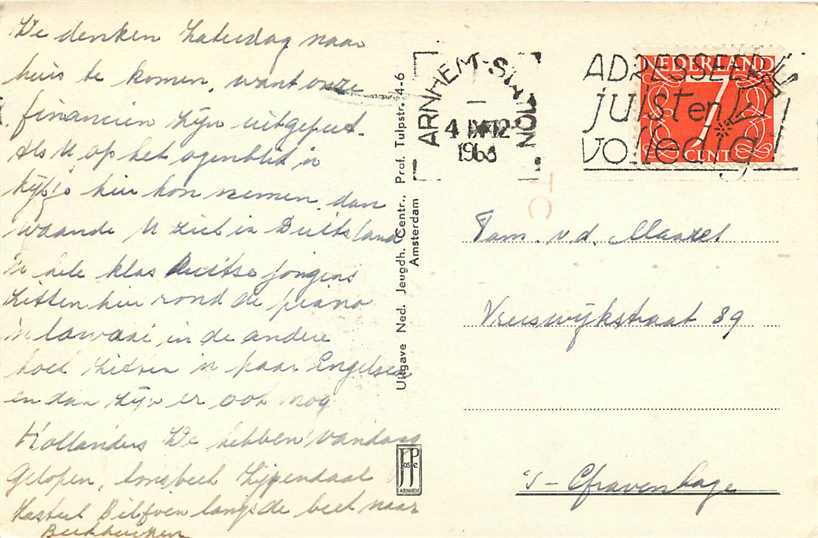 We denken Zaterdag naar
huis te komen, want onze
financien zijn uitgeput.
Als U op het ogenblik 'n
kijkje hier kon nemen, dan
waande U zich in Duitsland
'n hele klas Duitse jongens
zitten hier rond de piano
'n lawaai, in de andere
hoek zitten 'n paar Engelsen
en dan zijn er ook nog
Hollanders We hebben vandaag
gelopen, Zijpendaal
Kasteel langs de beek naar
Uitgave Ned. Jeugdh. Centr., Prof. Tulpstr. 4-6
Amsterdam
JosPé
ARNHEM
ARNHEM-STATION
4 IX 12
1963
ADRESSEER
juist en
volledig
NEDERLAND
7
CENT
TC
Fam. v.d. Maarel
Vreeswijkstraat 89
's-Gravenhage